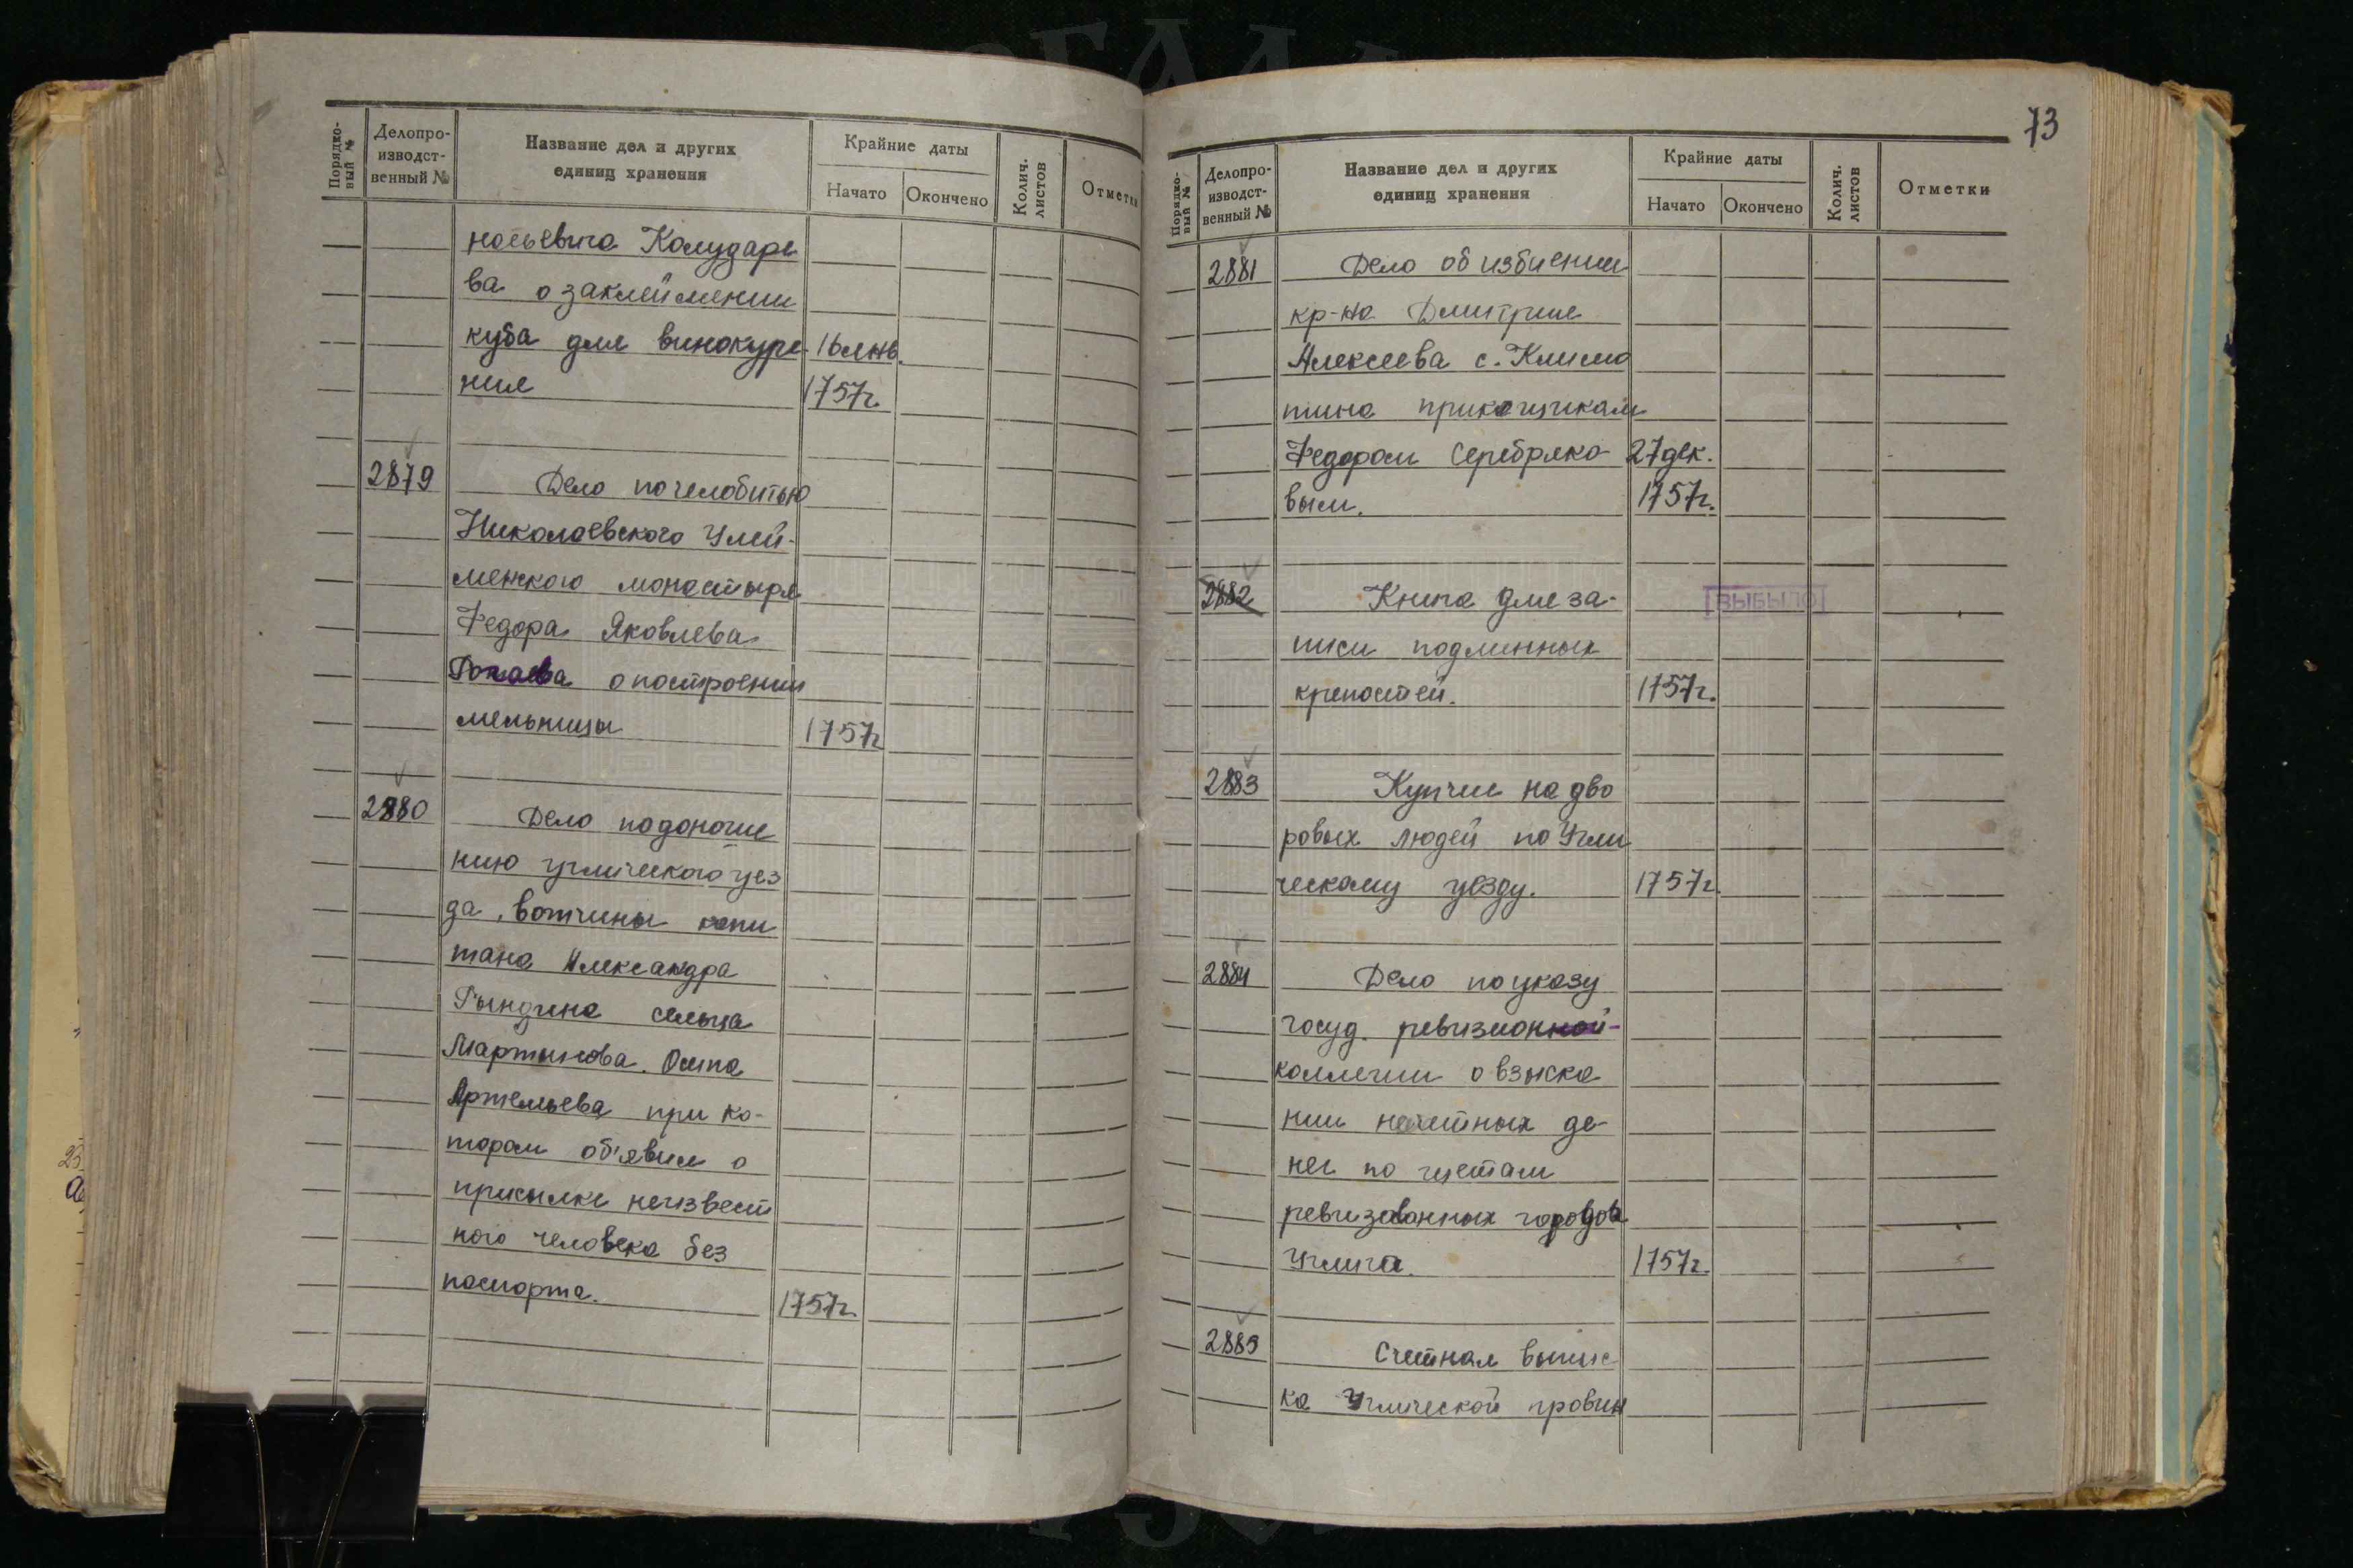 Порядко-
вый №
Делопро-
изводст-
венный №
Название дел и других
единиц хранения
Крайние даты
Начато
Окончено
Колич.
листов
Отметки
насьевича Калударе
ва о заклеймении
куба для винокуре- 16 янв.
ния 1757г.
2879 Дело по челобитью
Николаевского Улей-
менского монастыря
Федора Яковлева
о построении
мельницы 1757г
2880 Дело по доноше
нию угличского уез
да, вотчины капи
тана Александра
Рындина сельца
Мартынова. Осипа
Артемьева при ко-
тором об'явил о
присылке неизвест
ного человека без
паспорта. 1757г.
73
Порядко-
вый №
Делопро-
изводст-
венный №
Название дел и других
единиц хранения
Крайние даты
Начато
Окончено
Колич.
листов
Отметки
2881 Дело об избиении
кр-на Дмитрия
Алексеева с. Клима
тина прикащикам
Федором Серебряко- 27 дек.
вым. 1757г.
2882 Книга для за- ВЫБЫЛО
писи подлинных
крепостей. 1757г.
2883 Купчие на дво
ровых людей по Угли
ческому уезду. 1757г.
2884 Дело по указу
госуд. ревизионной-
коллегии о взыска
нии начетных де-
нег по щетам
ревизованных городов
Углича. 1757г.
2885 Счетная выпис
ка Угличской провин